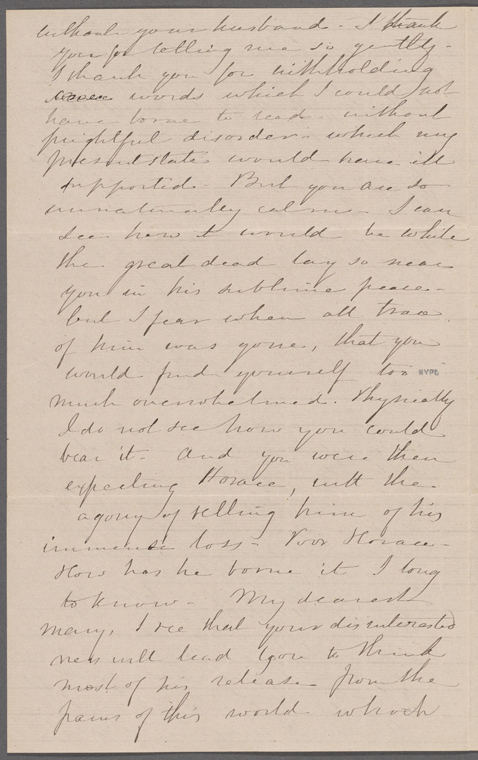 without your husband - I thank
you for telling me so gently -
I thank you for withholding
words which I could not
have borne to read without
frightful disorder - which my
present state would have ill
supported. But you are so
unnaturally calm - I can
see how it would be while
the great dead lay so near
you in his sublime peace -
but I fear when all trace
of him was gone, that you
would find yourself too
NYPL
much overwhelmed. Physically
I do not see how you could
bear it - and you were then
expecting Horace, with the
agony of telling him of his
immense loss - Poor Horace -
How has he borne it I long
to know - My dearest
Mary, I see that your disinterested
ness will lead you to think
most of his release from the
pains of this world which